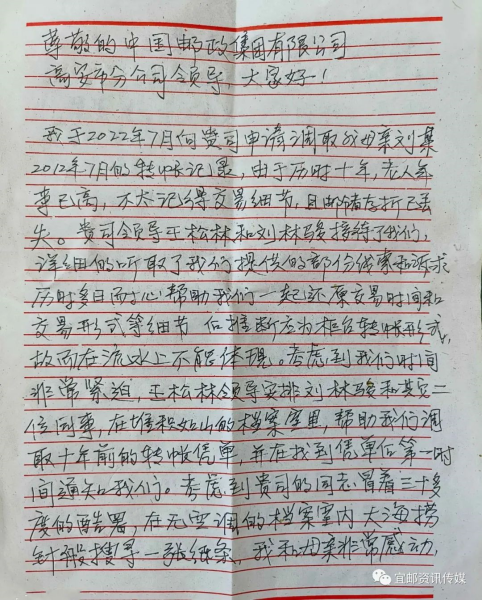 尊敬的中国邮政集团有限公司
高安市分公司领导，大家好！
我于2022年7月向贵司申请调取我母亲刘某
2012年7月的转帐记录，由于历时十年，老人年
事已高，不太记得交易细节，且邮储存折已丢
失。贵司领导王松林和刘林骏接待了我们，
详细的听取了我们提供的部份线索和诉求
历时多日耐心帮助我们一起还原交易时间和
交易形式等细节 后推断应为柜台转帐形式，
故而在流水上不能体现。考虑到我们时间
非常紧迫，王松林领导安排刘林骏和其它二
位同事，在堆积如山的档案室里，帮助我们调
取十年前的转帐凭单，并在找到凭单后第一时
间通知我们。考虑到贵司的同志冒着三十多
度的酷暑，在无空调的档案室内 大海捞
针般搜寻一张纸条，我和母亲非常感动，
宜邮资讯传媒